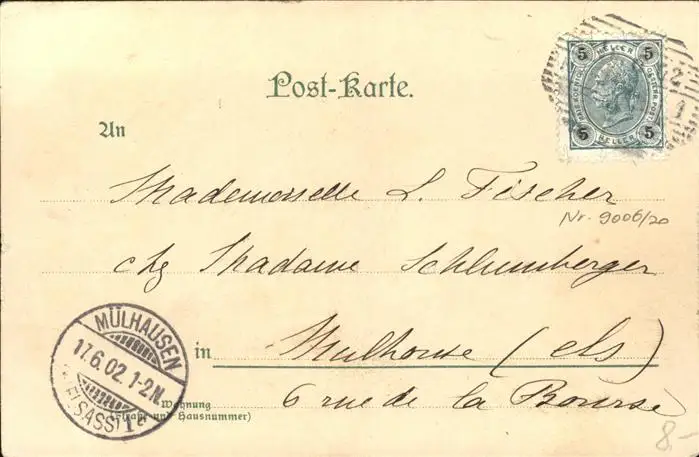 5 HELLER 5
5 HELLER 5
Post-Karte.
An
Mademoiselle L. Fischer
Nr. 9006/20
chez Madame Schlumberger
in Mulhouse (Els)
6 rue de la Bourse
Wohnung
(Straße und Hausnummer)
MÜLHAUSEN
17.6.02.1-2N.
(ELSASS) 1
8.-